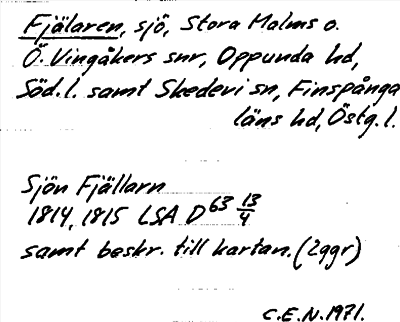 Fjälaren, sjö, Stora Malms o.
Ö. Vingåkers snr, Oppunda hd,
Söd.l. samt Skedevi sn, Finspånga
läns hd, Östg.l.
Sjön Fjällarn
1814, 1815 LSA D63 13/4
samt beskr. till kartan. (2ggr)
C.E.N. 1971.